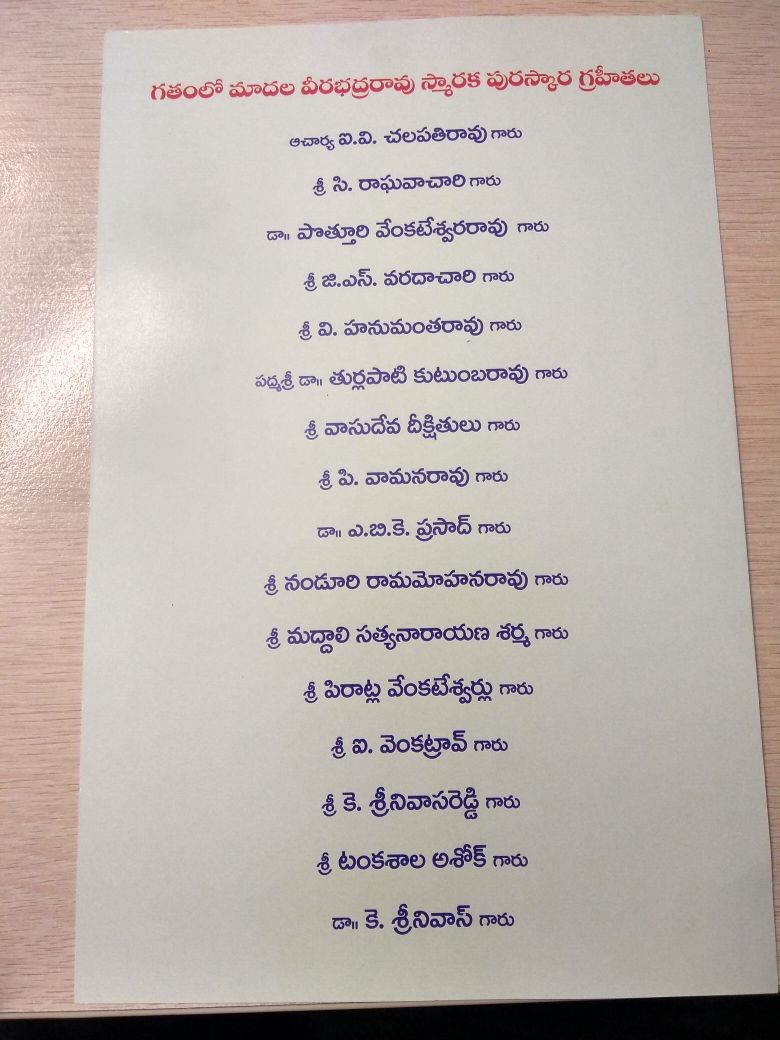 గతంలో మాదల వీరభద్రరావు స్మారక పురస్కార గ్రహీతలు
ఆచార్య ఐ.వి. చలపతిరావు గారు
శ్రీ సి. రాఘవాచారి గారు
డా॥ పొత్తూరి వేంకటేశ్వరరావు గారు
శ్రీ జి.ఎస్. వరదాచారి గారు
శ్రీ వి. హనుమంతరావు గారు
పద్మశ్రీ డా॥ తుర్లపాటి కుటుంబరావు గారు
శ్రీ వాసుదేవ దీక్షితులు గారు
శ్రీ పి. వామనరావు గారు
డా॥ ఎ.బి.కె. ప్రసాద్ గారు
శ్రీ నండూరి రామమోహనరావు గారు
శ్రీ మద్దాలి సత్యనారాయణ శర్మ గారు
శ్రీ పిరాట్ల వేంకటేశ్వర్లు గారు
శ్రీ ఐ. వెంకట్రావ్ గారు
శ్రీ కె. శ్రీనివాసరెడ్డి గారు
శ్రీ టంకశాల అశోక్ గారు
డా॥ కె. శ్రీనివాస్ గారు